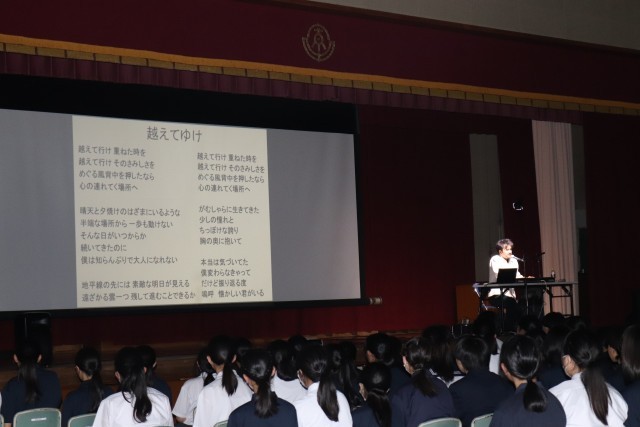 越えてゆけ
越えて行け 重ねた時を
越えて行け そのさみしさを
めぐる風背中を押したなら
心の連れてく場所へ
晴天と夕焼けのはざまにいるような
半端な場所から 一歩も動けない
そんな日がいつからか
続いてきたのに
僕は知らんぷりで大人になれない
地平線の先には 素敵な明日が見える
遠ざかる雲一つ 残して進むことできるか
越えて行け 重ねた時を
越えて行け そのさみしさを
めぐる風背中を押したなら
心の連れてく場所へ
がむしゃらに生きてきた
少しの憧れと
ちっぽけな誇り
胸の奥に抱いて
本当は気づいてた
僕変わらなきゃって
だけど振り返る度
嗚呼 懐かしい君がいる